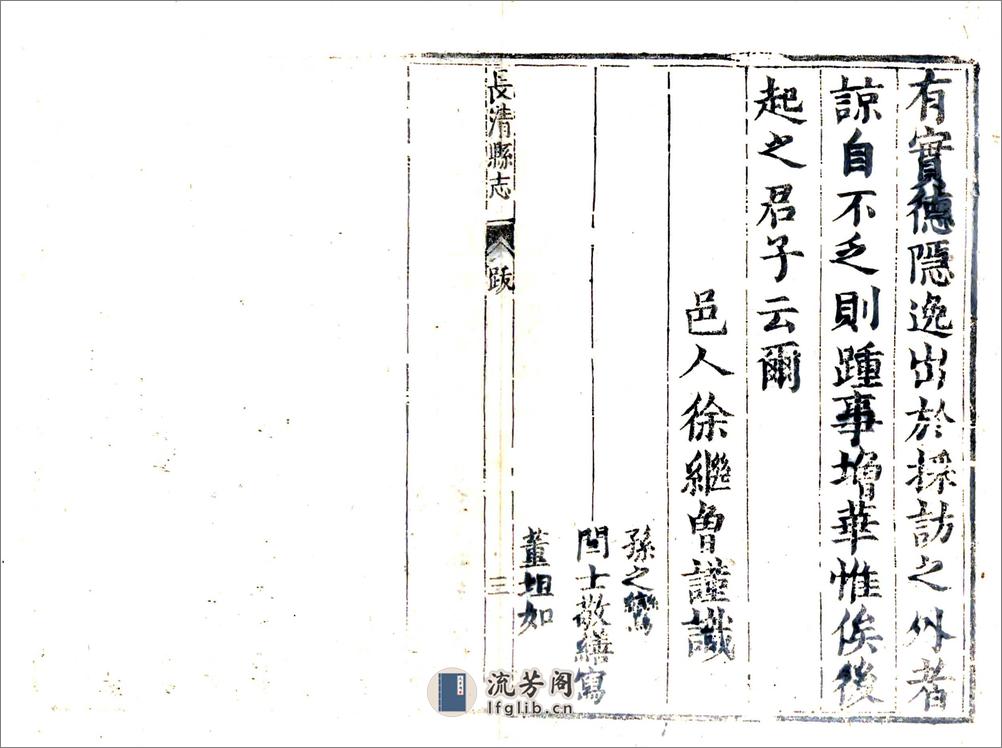 有實德隱逸出於採訪之外者
諒自不乏則踵事增華惟俟後
起之君子云爾
邑人徐繼曾謹識
孫之鸞
閆士敬繕寫
董坦如
長清縣志 跋 三
流芳阁
lfglib.cn